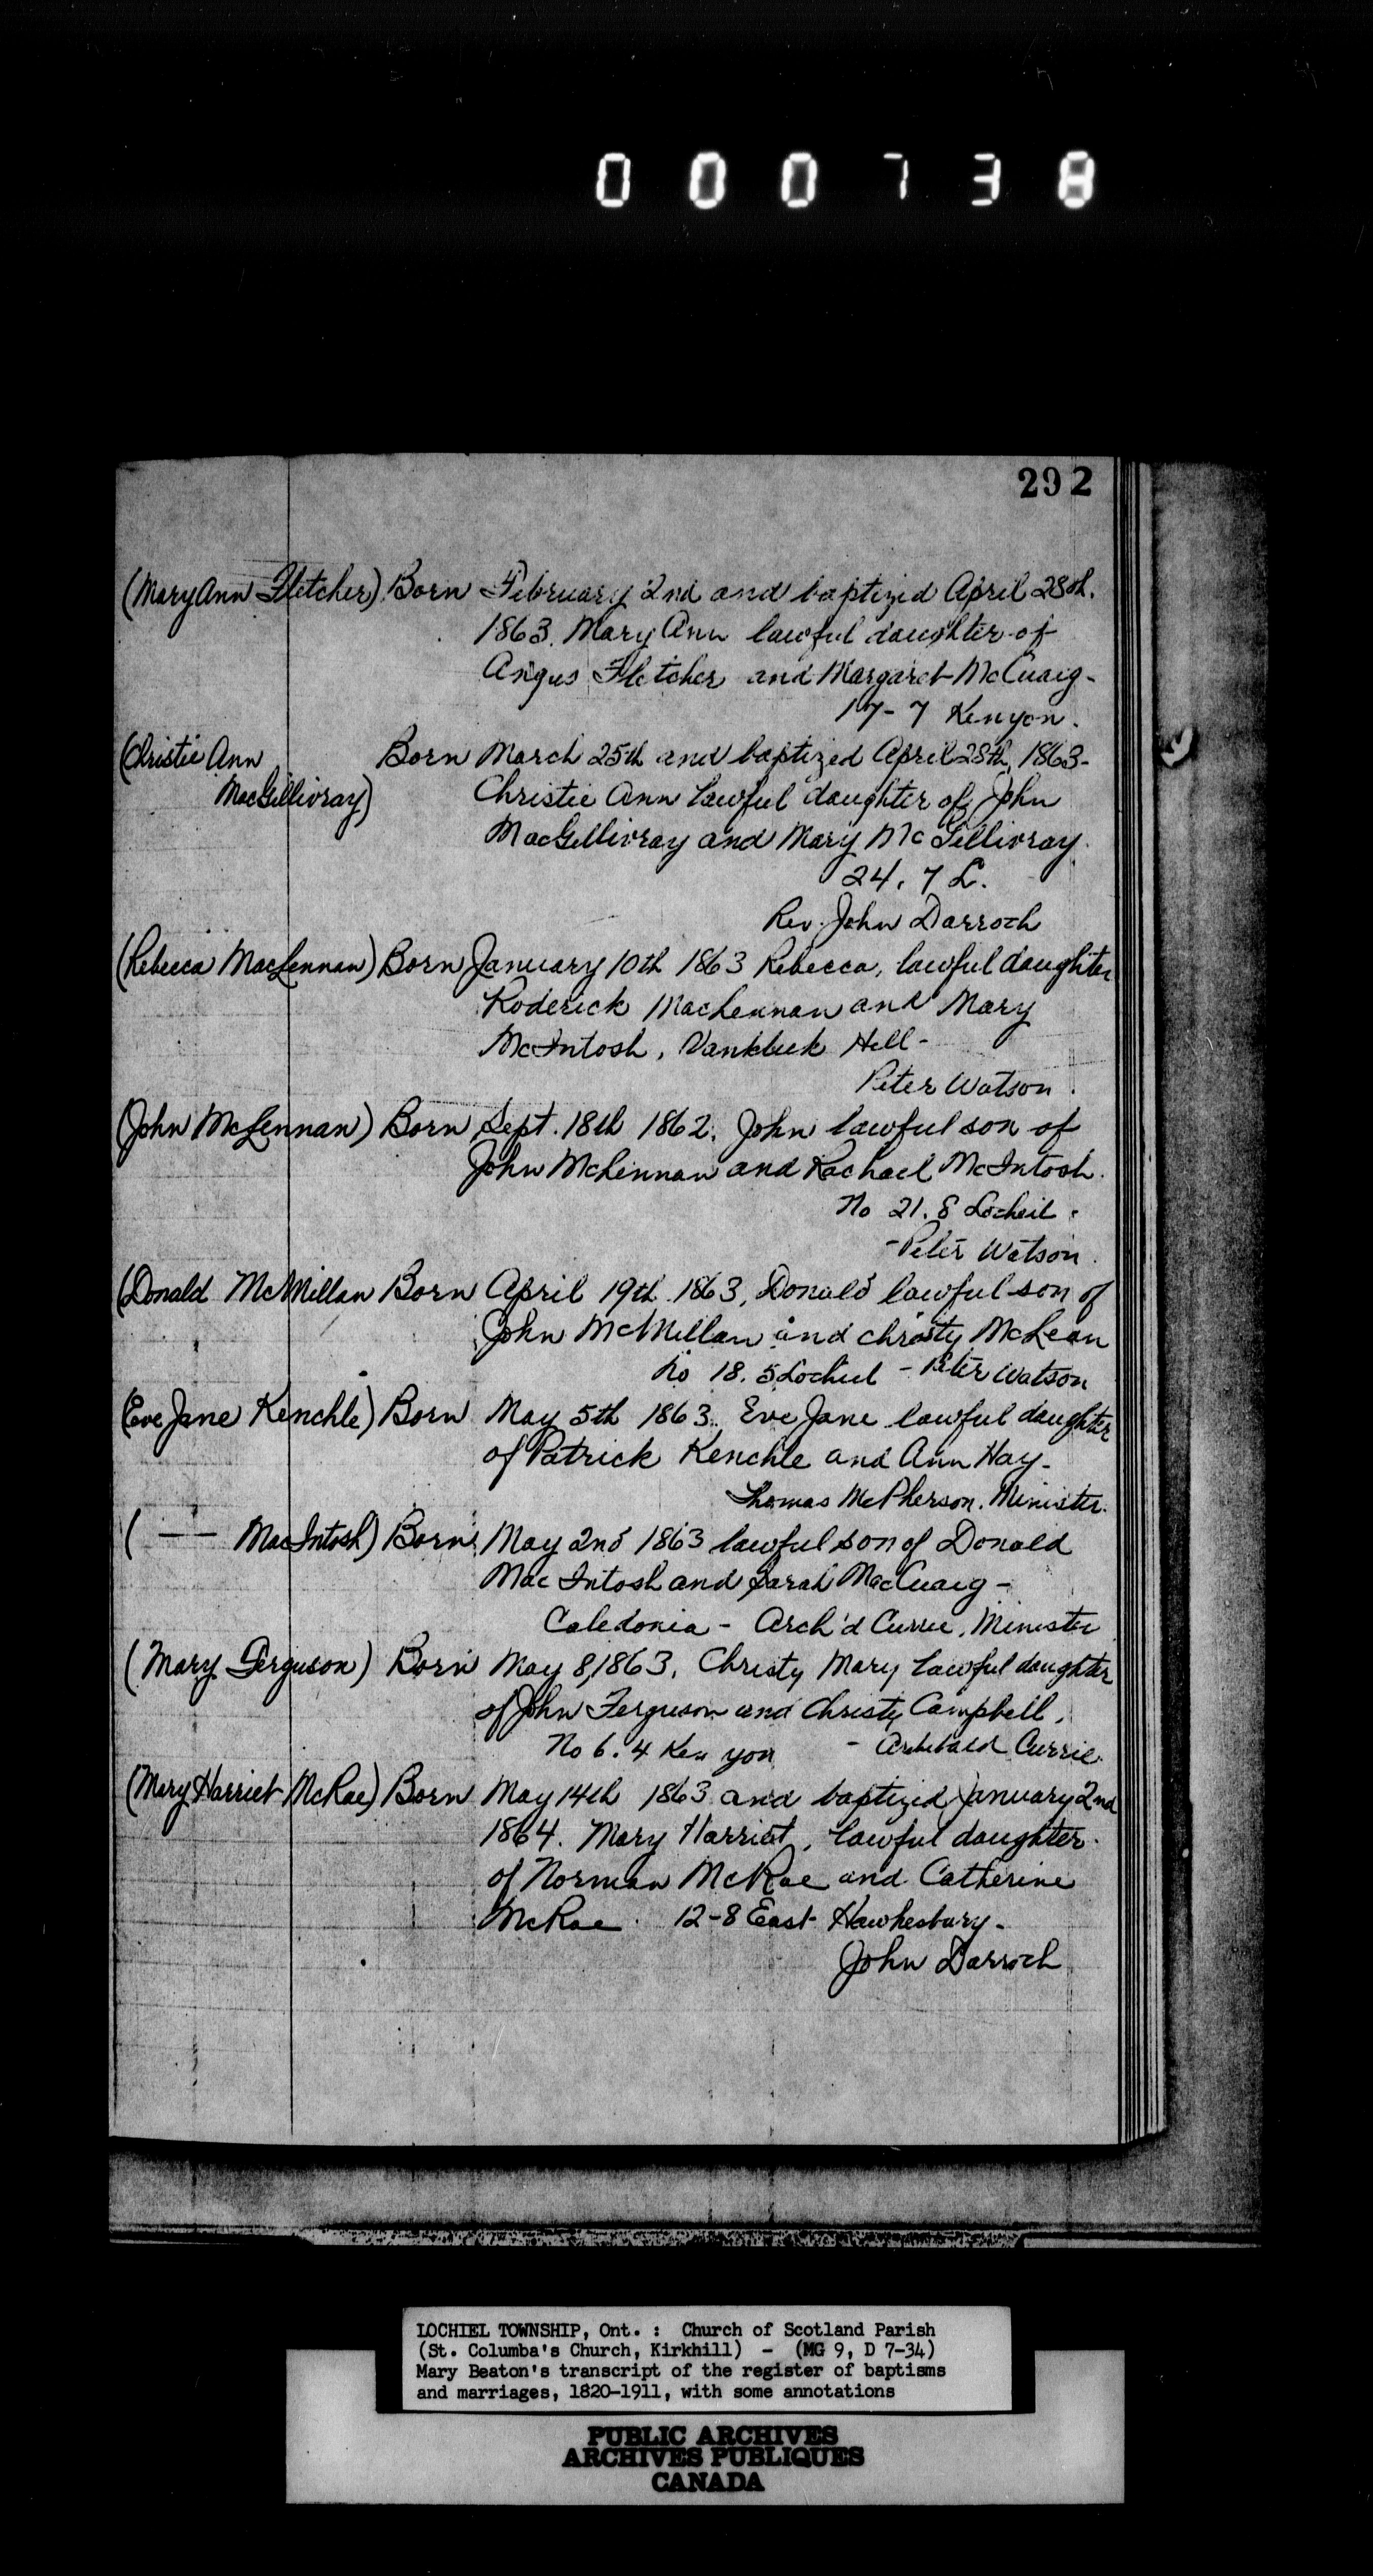 000738
292
(Mary Ann Fletcher) Born February 2nd and baptized April 28th.
1863. Mary Ann lawful daughter of
Angus Fletcher and Margaret McCuaig-
17-7 Kenyon.
(Christie Ann Born March 25th and baptized April 28th, 1863-
MacGillivray) Christie Ann lawful daughter of John
MacGillivray and Mary McGillivray.
24. 7 L.
Rev. John Darroch
(Rebecca MacLennan) Born January 10th 1863 Rebecca, lawful daughter
Roderick MacLennan and Mary
McIntosh, Vankleek Hill-
Peter Watson.
(John McLennan) Born Sept. 18th 1862. John lawful son of
John McLennan and Rachael McIntosh.
No 21. 8 Locheil.
-Peter Watson.
(Donald McMillan Born April 19th 1863, Donald lawful son of
John McMillan and Christy McLean
No 18. 5 Lochiel - Peter Watson
(Eve Jane Kenchle) Born May 5th 1863. Eve Jane lawful daughter
of Patrick Kenchle and Ann Hay-
Thomas McPherson. Minister.
( — MacIntosh) Born May 2nd 1863 lawful son of Donald
Mac Intosh and Sarah MacCuaig-
Caledonia - Arch'd Currie, Minister
(Mary Ferguson) Born May 8, 1863. Christy Mary lawful daughter
of John Ferguson and Christy Campbell.
No 6. 4 Kenyon - Archibald Currie.
(Mary Harriet McRae) Born May 14th 1863 and baptized January 2nd
1864. Mary Harriet, lawful daughter
of Norman McRae and Catherine
McRae. 12-8 East Hawkesbury-
John Darroch
LOCHIEL TOWNSHIP, Ont. : Church of Scotland Parish
(St. Columba's Church, Kirkhill) - (MG 9, D 7-34)
Mary Beaton's transcript of the register of baptisms
and marriages, 1820-1911, with some annotations
PUBLIC ARCHIVES
ARCHIVES PUBLIQUES
CANADA